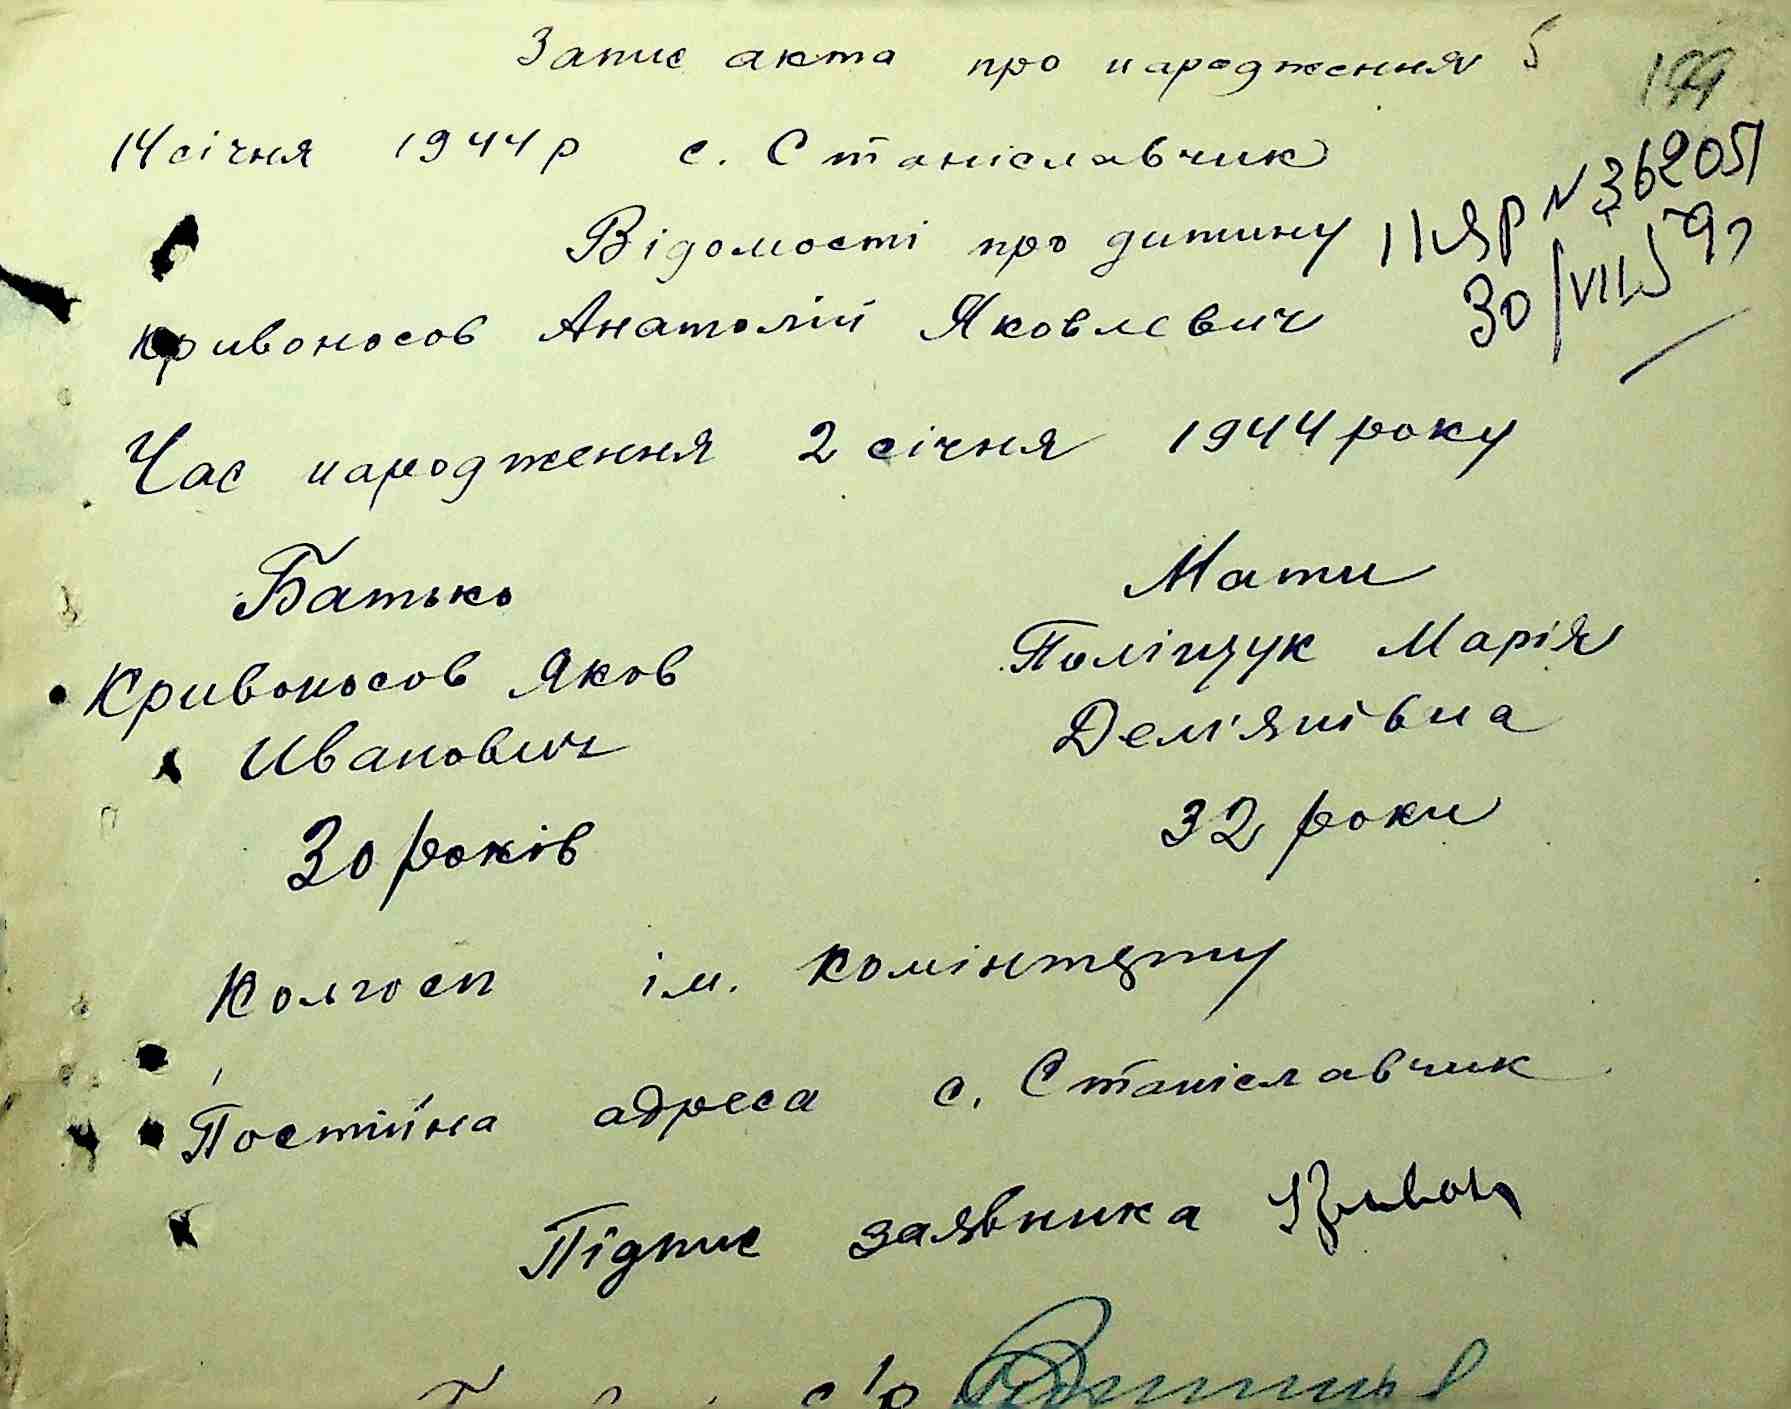 Запис акта про народження 5
199
14 січня 1944 р с. Станіславчик
II ЯР № 362051
Відомості про дитину
30/VII 59 р
Кривоносов Анатолій Яковлевич
Час народження 2 січня 1944 року
Батько Мати
Кривоносов Яков Поліщук Марія
Иванович Дем'янівна
30 років 32 роки
Колгосп ім. Комінтерну
Постійна адреса с. Станіславчик
Підпис заявника Кривон
с/р